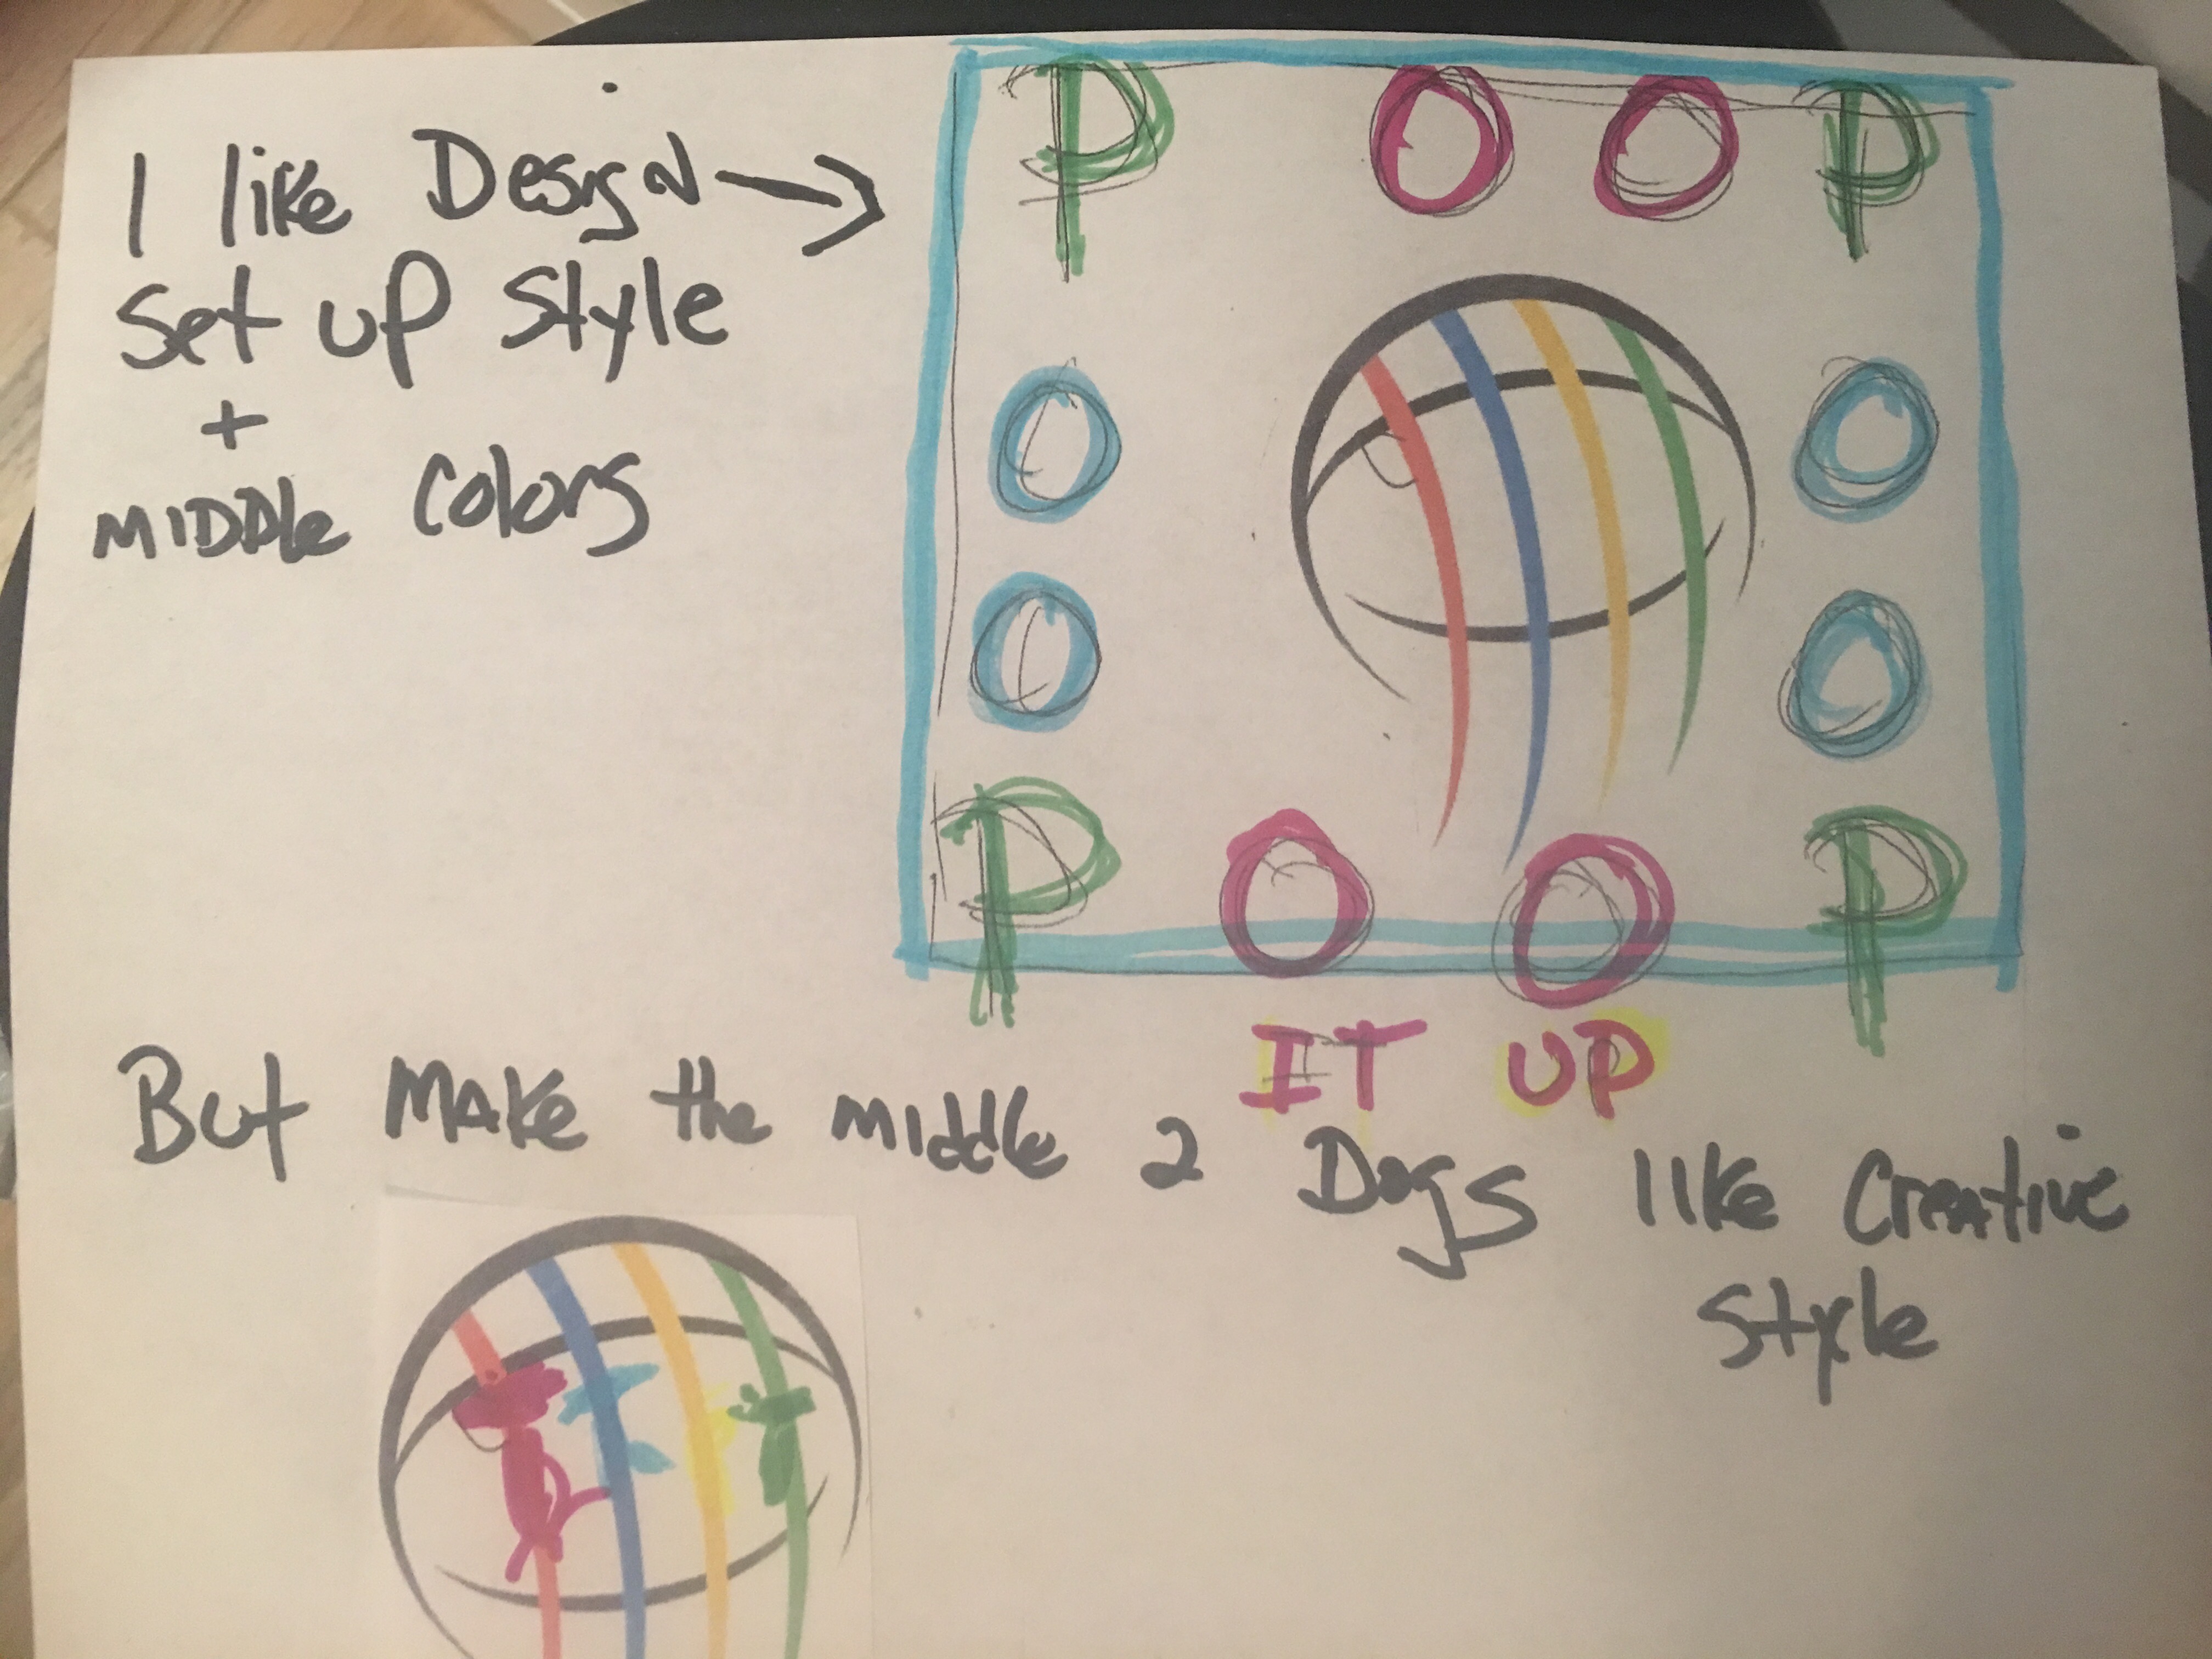 I like Design
Set up Style
+
MIDDle Colors
P O O P
O O
O O
P O O P
IT UP
But Make the middle 2 Dogs like Creative
Style